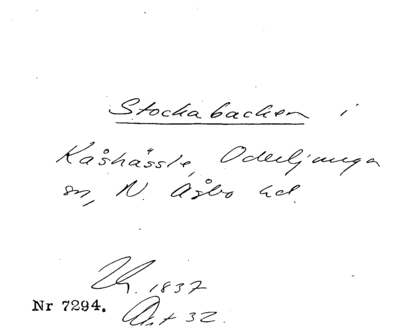 Stockabacken i
Kåshässle, Oderljunga
sn, N. Åsbo hd.
1837
Nr 7294. Art 32.